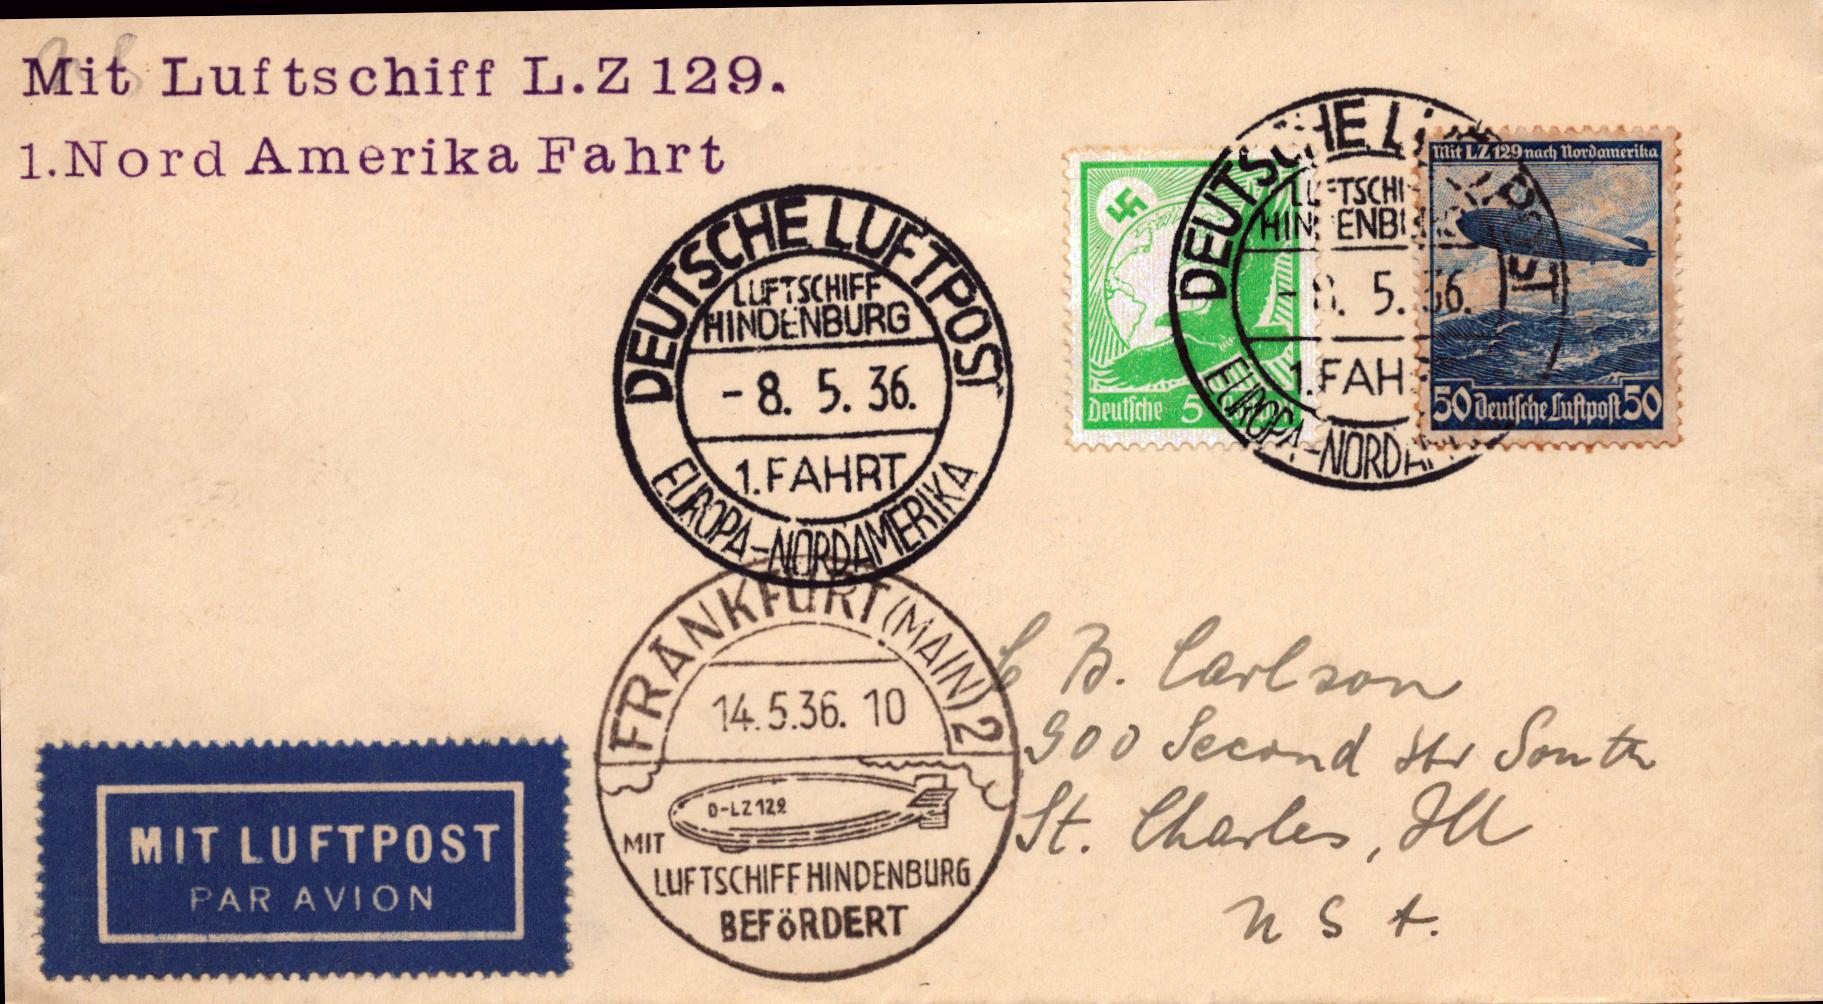 Mit Luftschiff L.Z 129.
1. Nord Amerika Fahrt
DEUTSCHE LUFTPOST
LUFTSCHIFF
HINDENBURG
-8. 5. 36.
1. FAHRT
EUROPA-NORDAMERIKA
Deutsche 5
DEUTSCHE LUFTPOST
LUFTSCHI
HINDENBU
-8. 5. 36.
1. FAH
EUROPA-NORDA
Mit LZ 129 nach Nordamerika
50 Deutsche Luftpost 50
FRANKFURT (MAIN) 2
14.5.36. 10
D-LZ129
MIT
LUFTSCHIFF HINDENBURG
BEFÖRDERT
MIT LUFTPOST
PAR AVION
C B. Carlson
900 Second Str South
St. Charles, Ill
U S A.